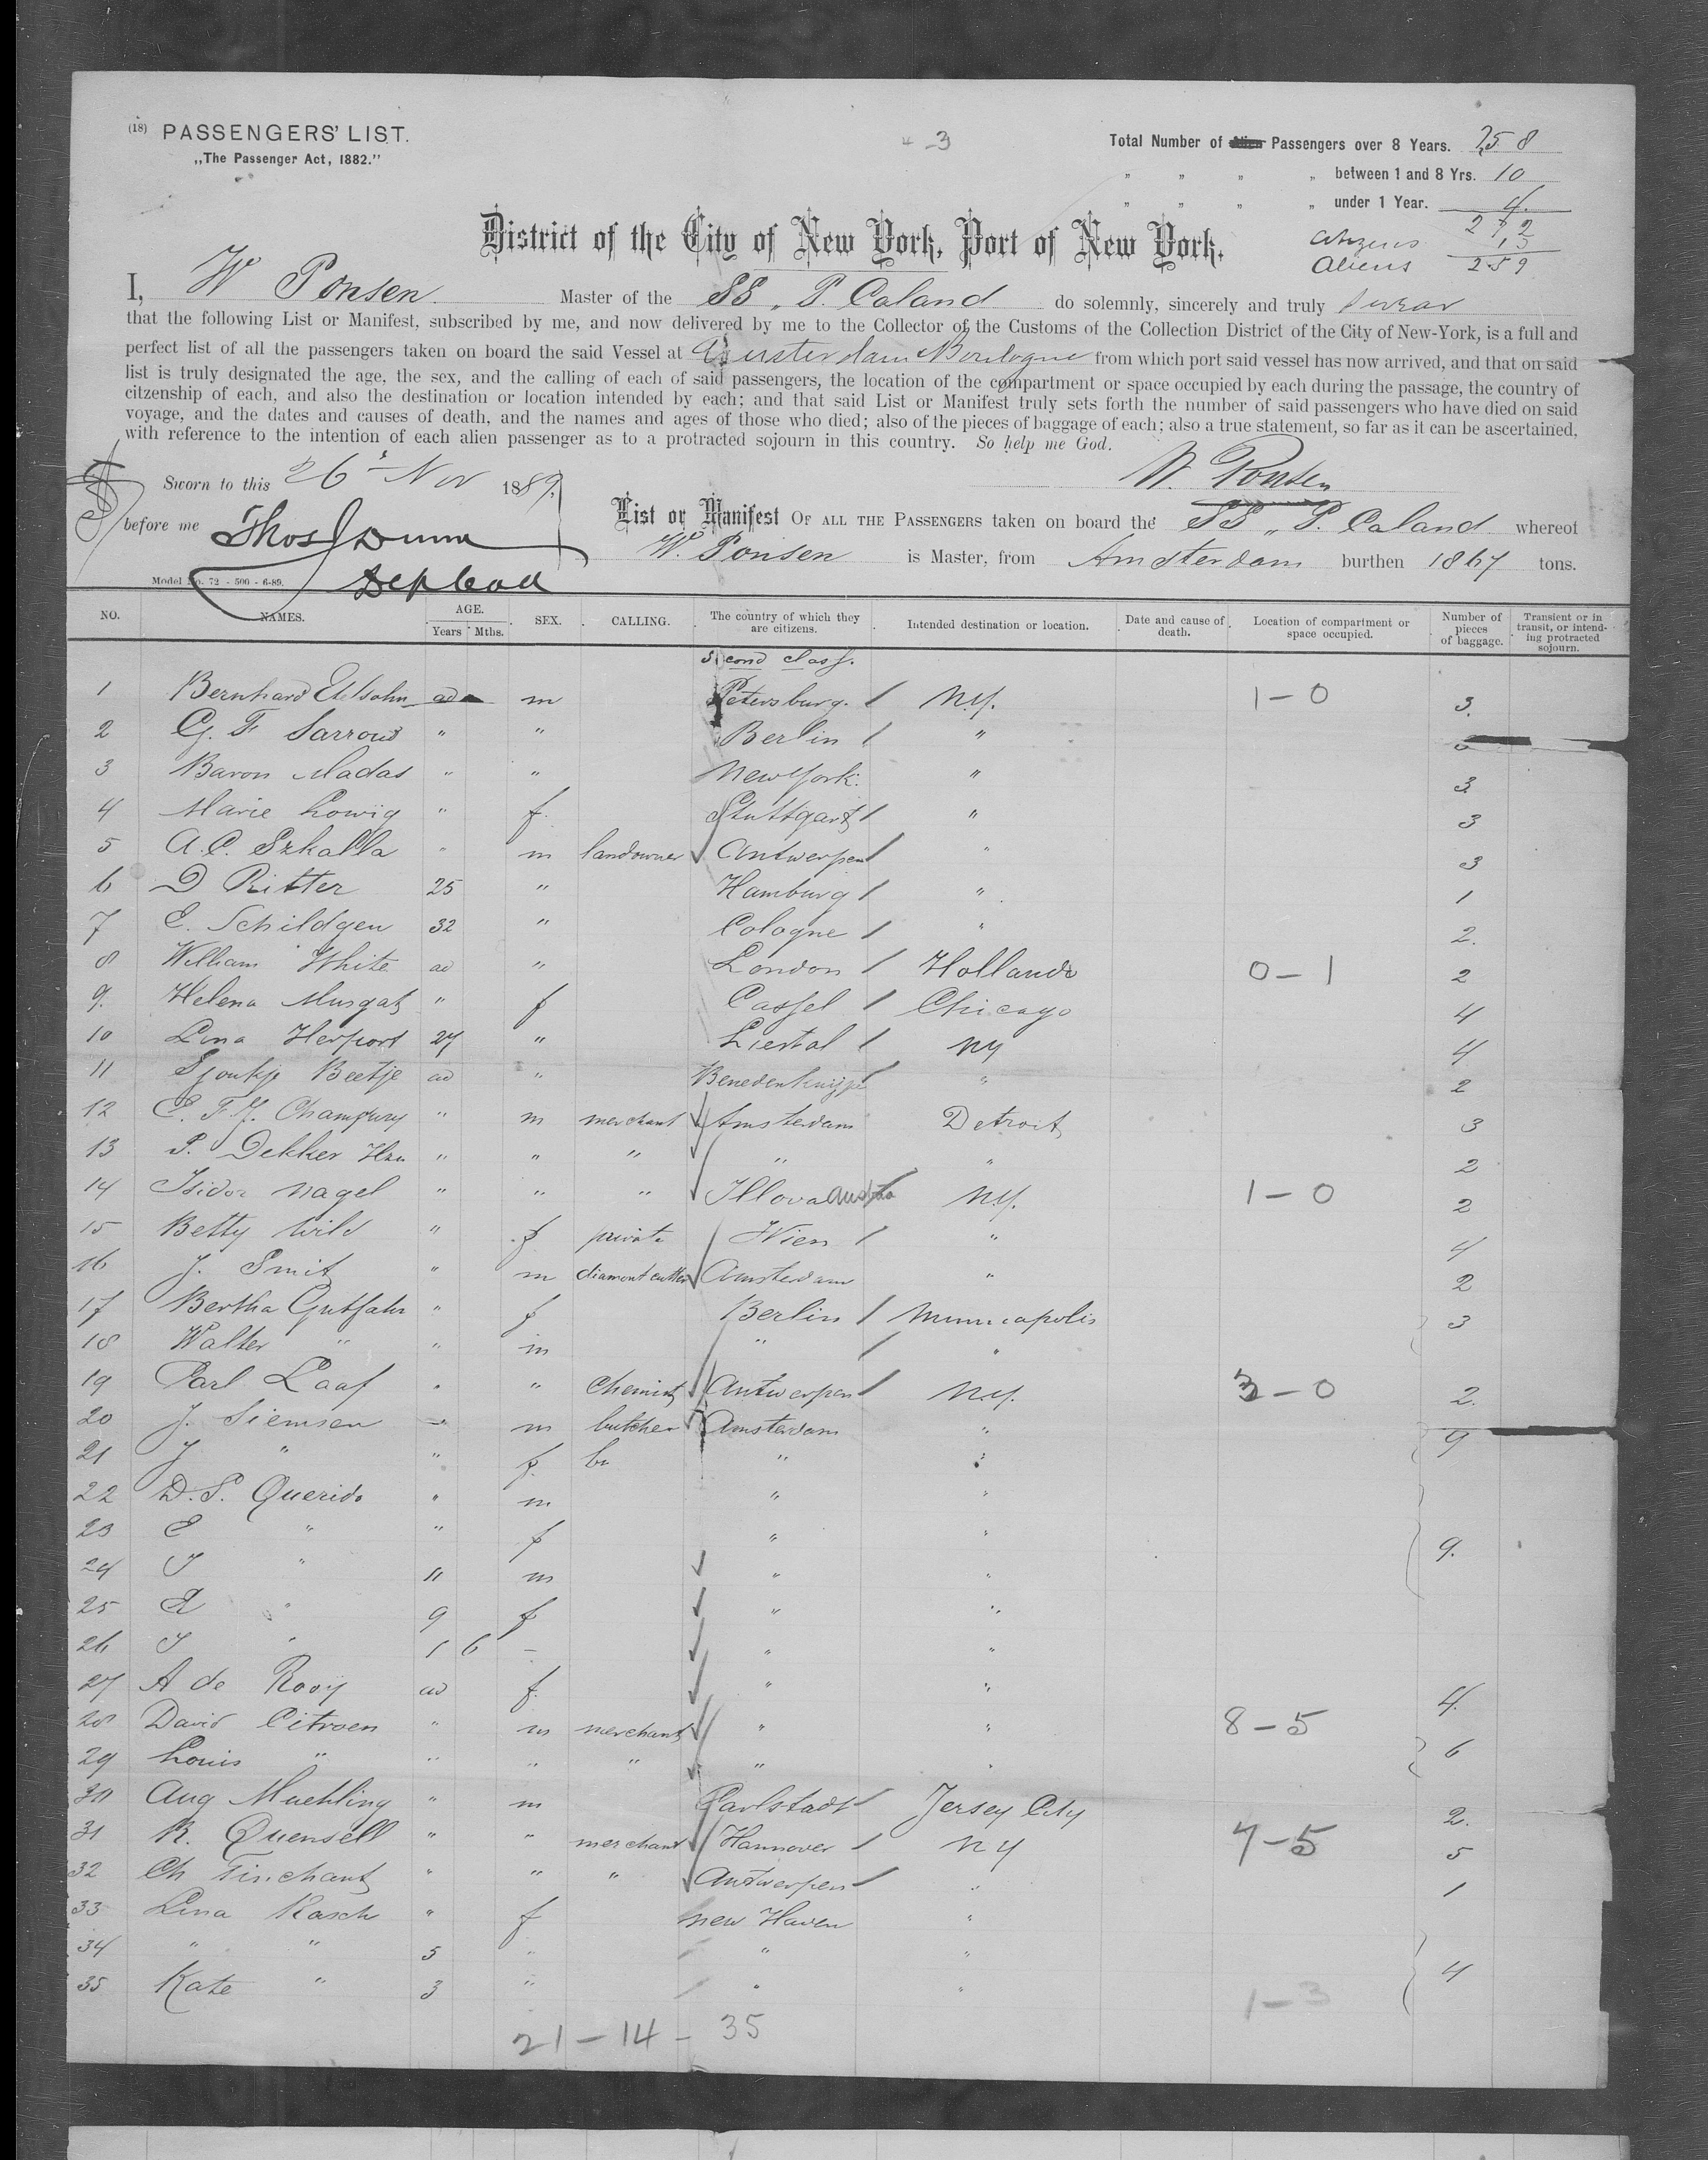 (18) PASSENGERS' LIST.
„The Passenger Act, 1882.”
3
Total Number of Alien Passengers over 8 Years. 258
„ „ „ „ between 1 and 8 Yrs. 10
„ „ „ „ under 1 Year. 4.
272
Citizens 13
Aliens 259
District of the City of New York, Port of New York.
I, W Ponsen Master of the SS „P. Caland do solemnly, sincerely and truly swear
that the following List or Manifest, subscribed by me, and now delivered by me to the Collector of the Customs of the Collection District of the City of New-York, is a full and
perfect list of all the passengers taken on board the said Vessel at Amsterdam Boulogne from which port said vessel has now arrived, and that on said
list is truly designated the age, the sex, and the calling of each of said passengers, the location of the compartment or space occupied by each during the passage, the country of
citzenship of each, and also the destination or location intended by each; and that said List or Manifest truly sets forth the number of said passengers who have died on said
voyage, and the dates and causes of death, and the names and ages of those who died; also of the pieces of baggage of each; also a true statement, so far as it can be ascertained,
with reference to the intention of each alien passenger as to a protracted sojourn in this country. So help me God.
W. Ponsen
Sworn to this 26 Nov 1889,
before me Thos J Dunn
Dep Coll
List or Manifest OF ALL THE PASSENGERS taken on board the SS „P. Caland whereof
W. Ponsen is Master, from Amsterdam burthen 1867 tons.
Model No. 72 - 500 - 6-89.
NO. NAMES. AGE. Years Mths. SEX. CALLING. The country of which they are citizens. Intended destination or location. Date and cause of death. Location of compartment or space occupied. Number of pieces of baggage. Transient or in transit, or intending protracted sojourn.
Second class.
1 Bernhard ad m Petersburg. N.Y. 1-0 3.
2 G. F Sarrow " " Berlin "
3 Baron " " New York. " 3
4 Marie Lowig " f. Stuttgart " 3
5 A. C. Szkalla " m landowner Antwerpen " 3
6 D Ritter 25 " Hamburg " 1
7 E. Schildgen 32 " Cologne " 2.
8 William White ad " London Holland 0-1 2
9. Helena Musgat " f Cassel Chicago 4
10 Lina Herport 27 " Liestal NY 4
11 Sjoukje Beetje ad " Benedenknijpe " 2
12 E. F. J. " m merchant Amsterdam Detroit 3
13 P. Dekker Hzn " " " " " 2
14 Isidor Nagel " " " Illova Austria N.Y. 1-0 2
15 Betty Wild " f private Wien " 4
16 J. Smit " m diamont cutter Amsterdam " 2
17 Bertha Gutfahr " f Berlin Minneapolis 3
18 Walter " " m " "
19 Carl Laaf " " chemist Antwerpen N.Y. 3-0 2.
20 J. Siemsen " m butcher Amsterdam " 9
21 J " " f. " "
22 D. S. Querido " m " "
23 E " " f " " 9.
24 " 11 m " "
25 " 9 f " "
26 " 1 6 - " "
27 A de Rooy ad f. " " 4.
28 David Citroen " m merchant " " 8-5
29 Louis " " " " " " 6
30 Aug Muehling " m Carlstadt Jersey City 2.
31 R. Quensell " " merchant Hannover NY 7-5 5
32 Ch Tinchant " " " Antwerpen " 1
33 Lina Rasch " f New Haven "
34 " " 5 " " "
35 Kate " 3 " " " 1-3 4
21-14- 35